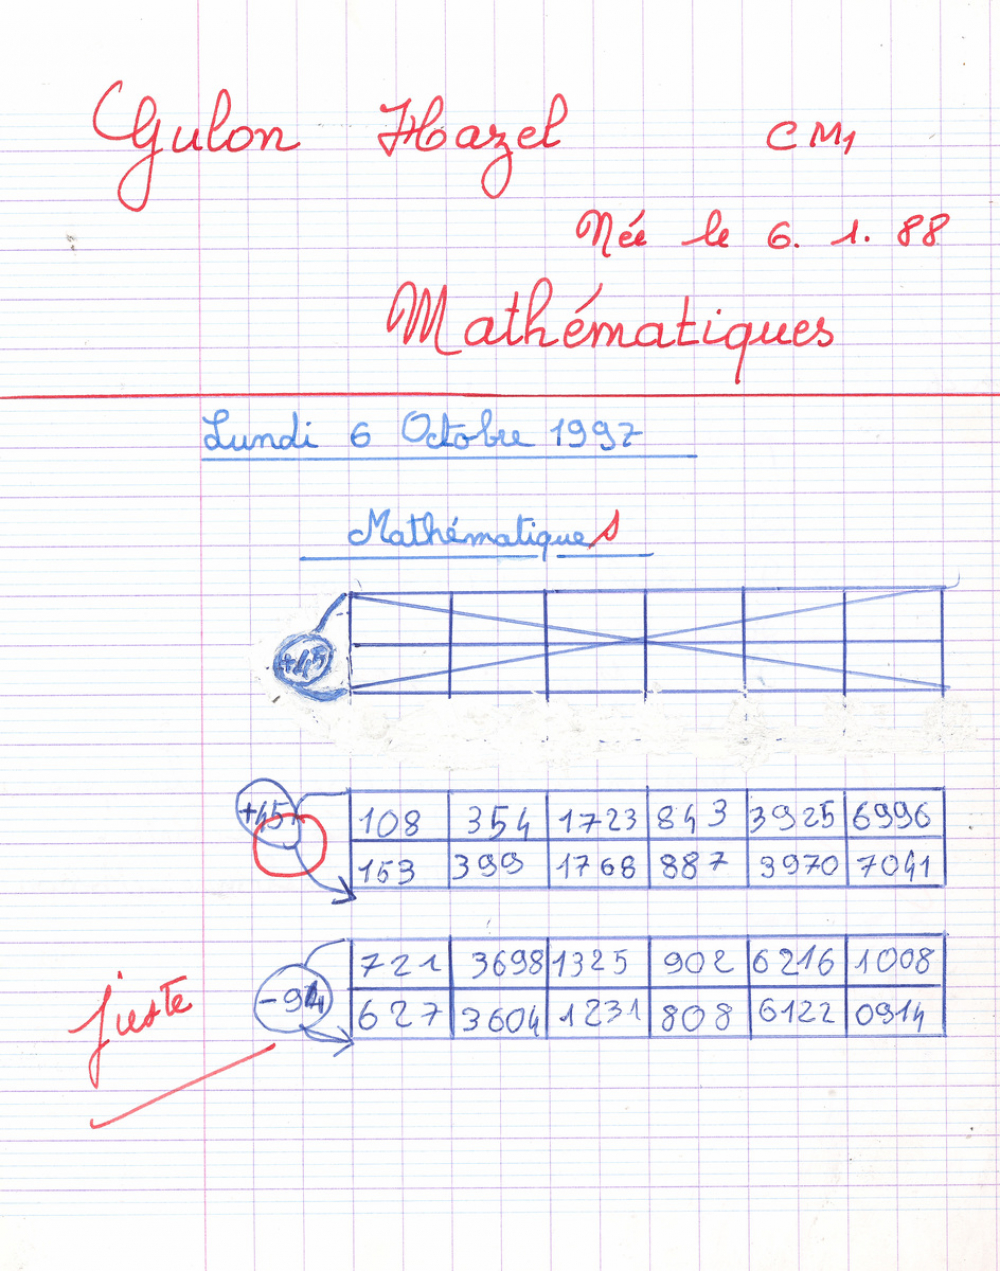 Gulon Hazel CM1
Née le 6. 1. 88
Mathématiques
Lundi 6 Octobre 1997
Mathématiques
+45
+45 108 354 1723 843 3925 6996
153 399 1768 887 3970 7041
-94 721 3698 1325 902 6216 1008
627 3604 1231 808 6122 0914
juste